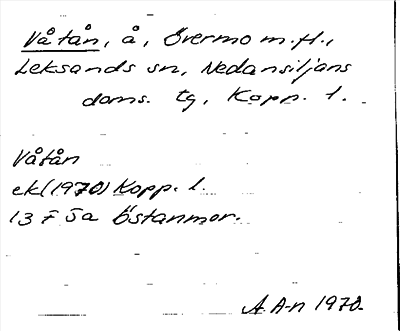 Våtån, å, Övermo m.fl.,
Leksands sn, Nedansiljans
doms. tg, Kopp. l.
Våtån
ek(1970) Kopp. l.
13 F 5a Östanmor.
A.A-n 1970.